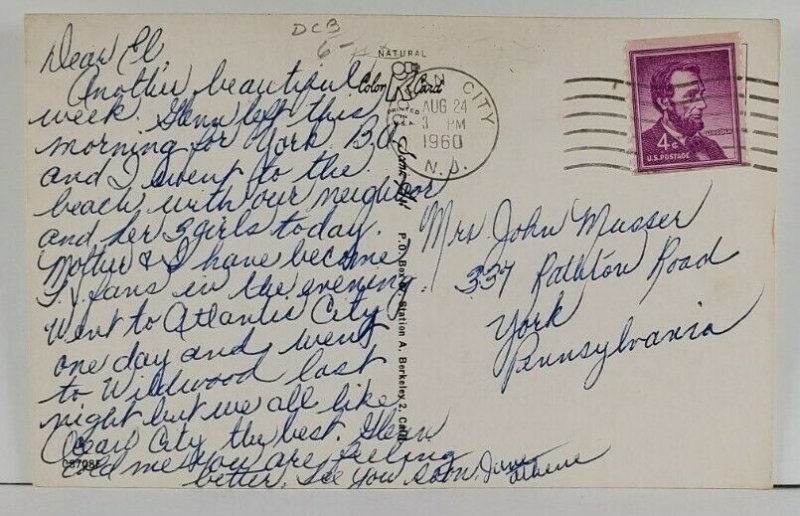 DCB
6-
NATURAL
Color Card
Dear El,
Another beautiful
week. Glenn left this
morning for York. B.A.
and I went to the
beach with our neighbor
and her 3 girls today.
Mother & I have become
T.V. fans in the evening.
Went to Atlantic City
one day and went
to Wildwood last
night but we all like
Ocean City the best. Glenn
told me you are feeling
better. See you soon,
P.O. Box Station A, Berkeley 2, Calif.
CITY
AUG 24
3 PM
1960
N.J.
4¢
U.S. POSTAGE
Mrs John Musser
337 Road
York
Pennsylvania